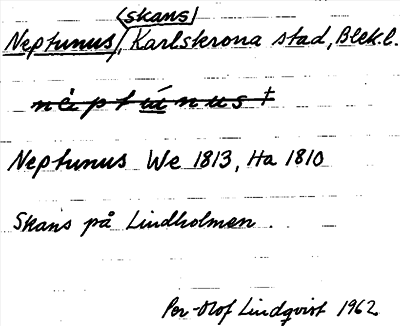 (skans)
Neptunus, Karlskrona stad, Blek.l.
Neptunus We 1813, Ha 1810
Skans på Lindholmen.
Per-Olof Lindqvist 1962